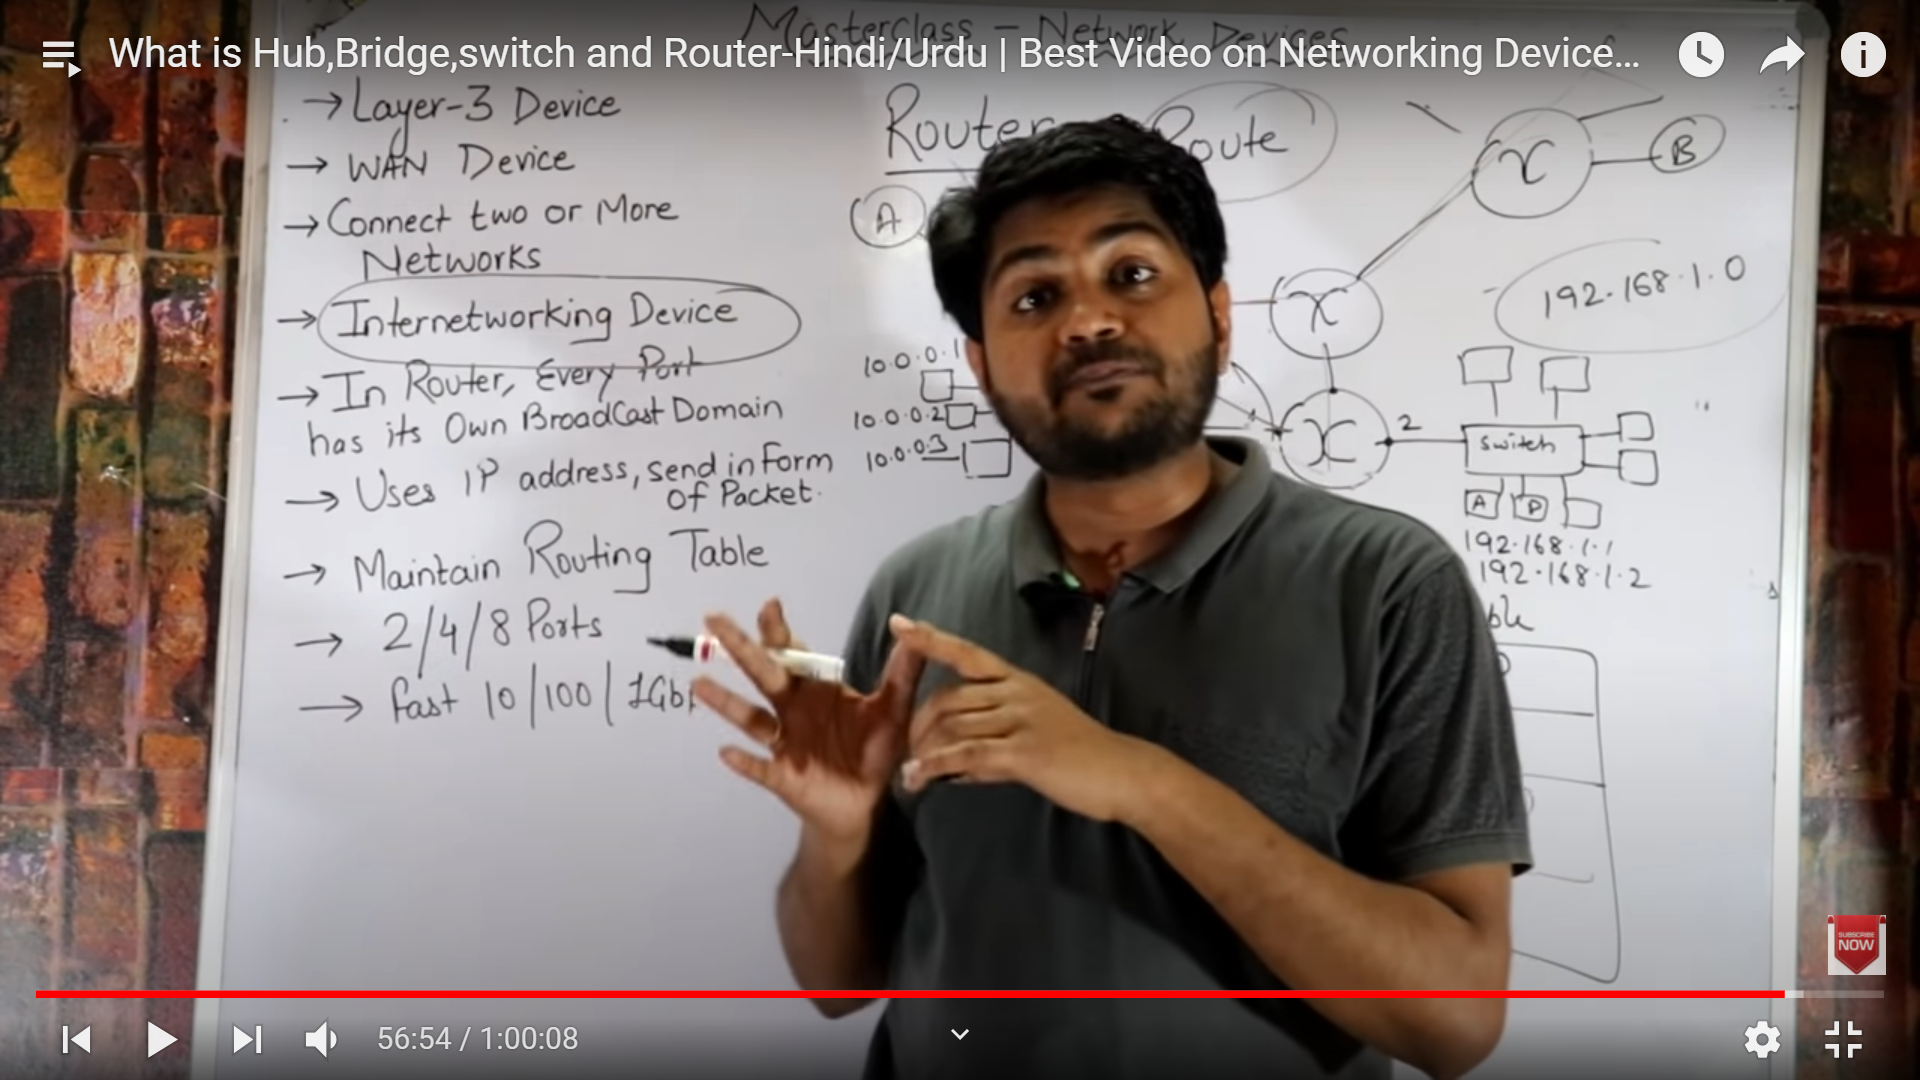 Masterclass - Network Devices
What is Hub,Bridge,switch and Router-Hindi/Urdu | Best Video on Networking Device...
→ Layer-3 Device
→ WAN Device
→ Connect two or More
Networks
→ Internetworking Device
→ In Router, Every Port
has its Own BroadCast Domain
→ Uses IP address, send in form
of Packet.
→ Maintain Routing Table
→ 2/4/8 Ports
→ fast 10/100/1Gb
Router
Route
A
B
192.168.1.0
10.0.0.1
10.0.0.2
10.0.0.3
1
2
switch
A
192.168.1.1
192.168.1.2
SUBSCRIBE
NOW
56:54 / 1:00:08